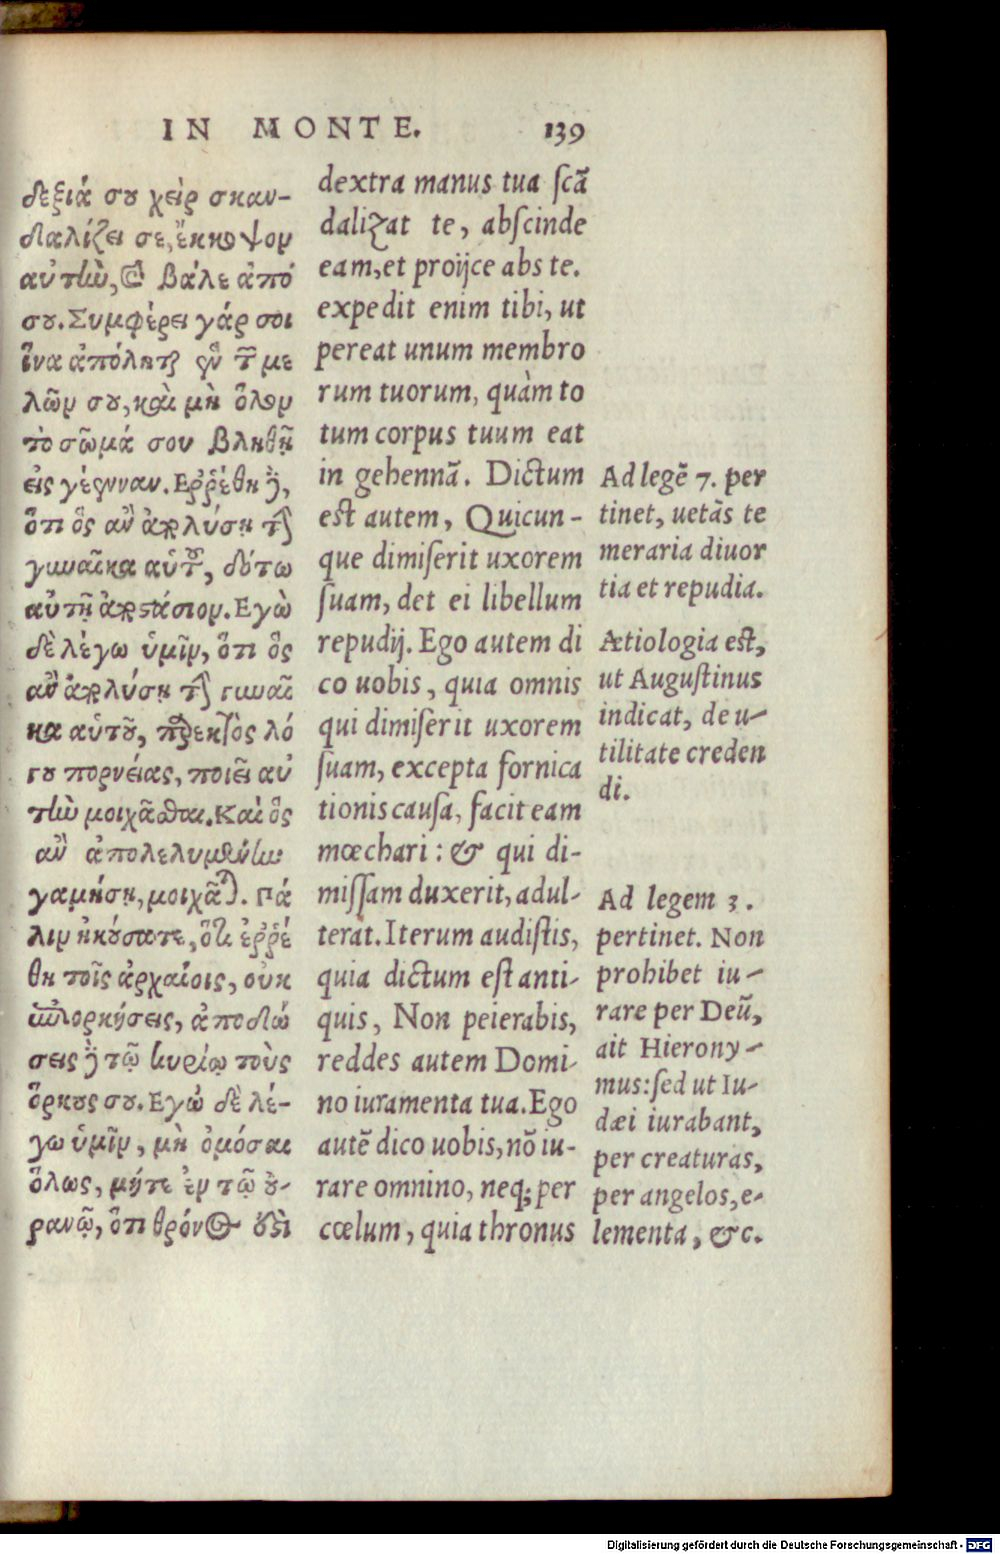 IN MONTE. 139
δεξιά σου χεὶρ σκαν-
δαλίζει σε, ἔκκοψον
αὐτὴν, καὶ βάλε ἀπό
σου. Συμφέρει γάρ σοι
ἵνα ἀπόληται ἓν τῶν με
λῶν σου, καὶ μὴ ὅλον
τὸ σῶμά σου βληθῇ
εἰς γέενναν. Ερῥέθη δὲ,
ὅτι ὃς ἂν ἀπολύσῃ τὴν
γυναῖκα αὑτοῦ, δότω
αὐτῇ ἀποστάσιον. Εγὼ
δὲ λέγω ὑμῖν, ὅτι ὃς
ἂν ἀπολύσῃ τὴν γυναῖ
κα αὑτοῦ, παρεκτὸς λό
γου πορνείας, ποιεῖ αὐ
τὴν μοιχᾶσθαι. Καὶ ὃς
ἂν ἀπολελυμένην
γαμήσῃ, μοιχᾶται. Πά
λιν ἠκούσατε, ὅτι ἐῤῥέ
θη τοῖς ἀρχαίοις, οὐκ
ἐπιορκήσεις, ἀποδώ
σεις δὲ τῷ κυρίῳ τοὺς
ὅρκους σου. Εγὼ δὲ λέ-
γω ὑμῖν, μὴ ὀμόσαι
ὅλως, μήτε ἐν τῷ οὐ-
ρανῷ, ὅτι θρόνος ἐστὶ
dextra manus tua ſcã
dalizat te, abſcinde
eam, et proijce abs te.
expedit enim tibi, ut
pereat unum membro
rum tuorum, quàm to
tum corpus tuum eat
in gehennã. Dictum
eſt autem, Quicun-
que dimiſerit uxorem
ſuam, det ei libellum
repudij. Ego autem di
co uobis, quia omnis
qui dimiſerit uxorem
ſuam, excepta fornica
tionis cauſa, facit eam
mœchari: & qui di-
miſſam duxerit, adul-
terat. Iterum audiſtis,
quia dictum eſt anti-
quis, Non peierabis,
reddes autem Domi-
no iuramenta tua. Ego
autẽ dico uobis, nõ iu-
rare omnino, neq; per
cœlum, quia thronus
Ad legẽ 7. per
tinet, uetãs te
meraria diuor
tia et repudia.
Ætiologia eſt,
ut Auguſtinus
indicat, de u-
tilitate creden
di.
Ad legem 3.
pertinet. Non
prohibet iu-
rare per Deũ,
ait Hierony-
mus: ſed ut Iu-
dæi iurabant,
per creaturas,
per angelos, e-
lementa, &c.
Digitalisierung gefördert durch die Deutsche Forschungsgemeinschaft - DFG